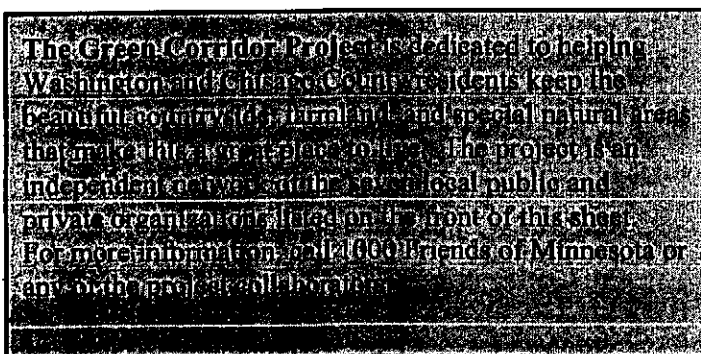 The Green Corridor Project is dedicated to helping
Washington and Chisago County residents keep the
beautiful countryside, farmland, and special natural areas
that make this a great place to live. The project is an
independent network of the seven local public and
private organizations listed on the front of this sheet.
For more information, call 1000 Friends of Minnesota or
any of the project collaborators.